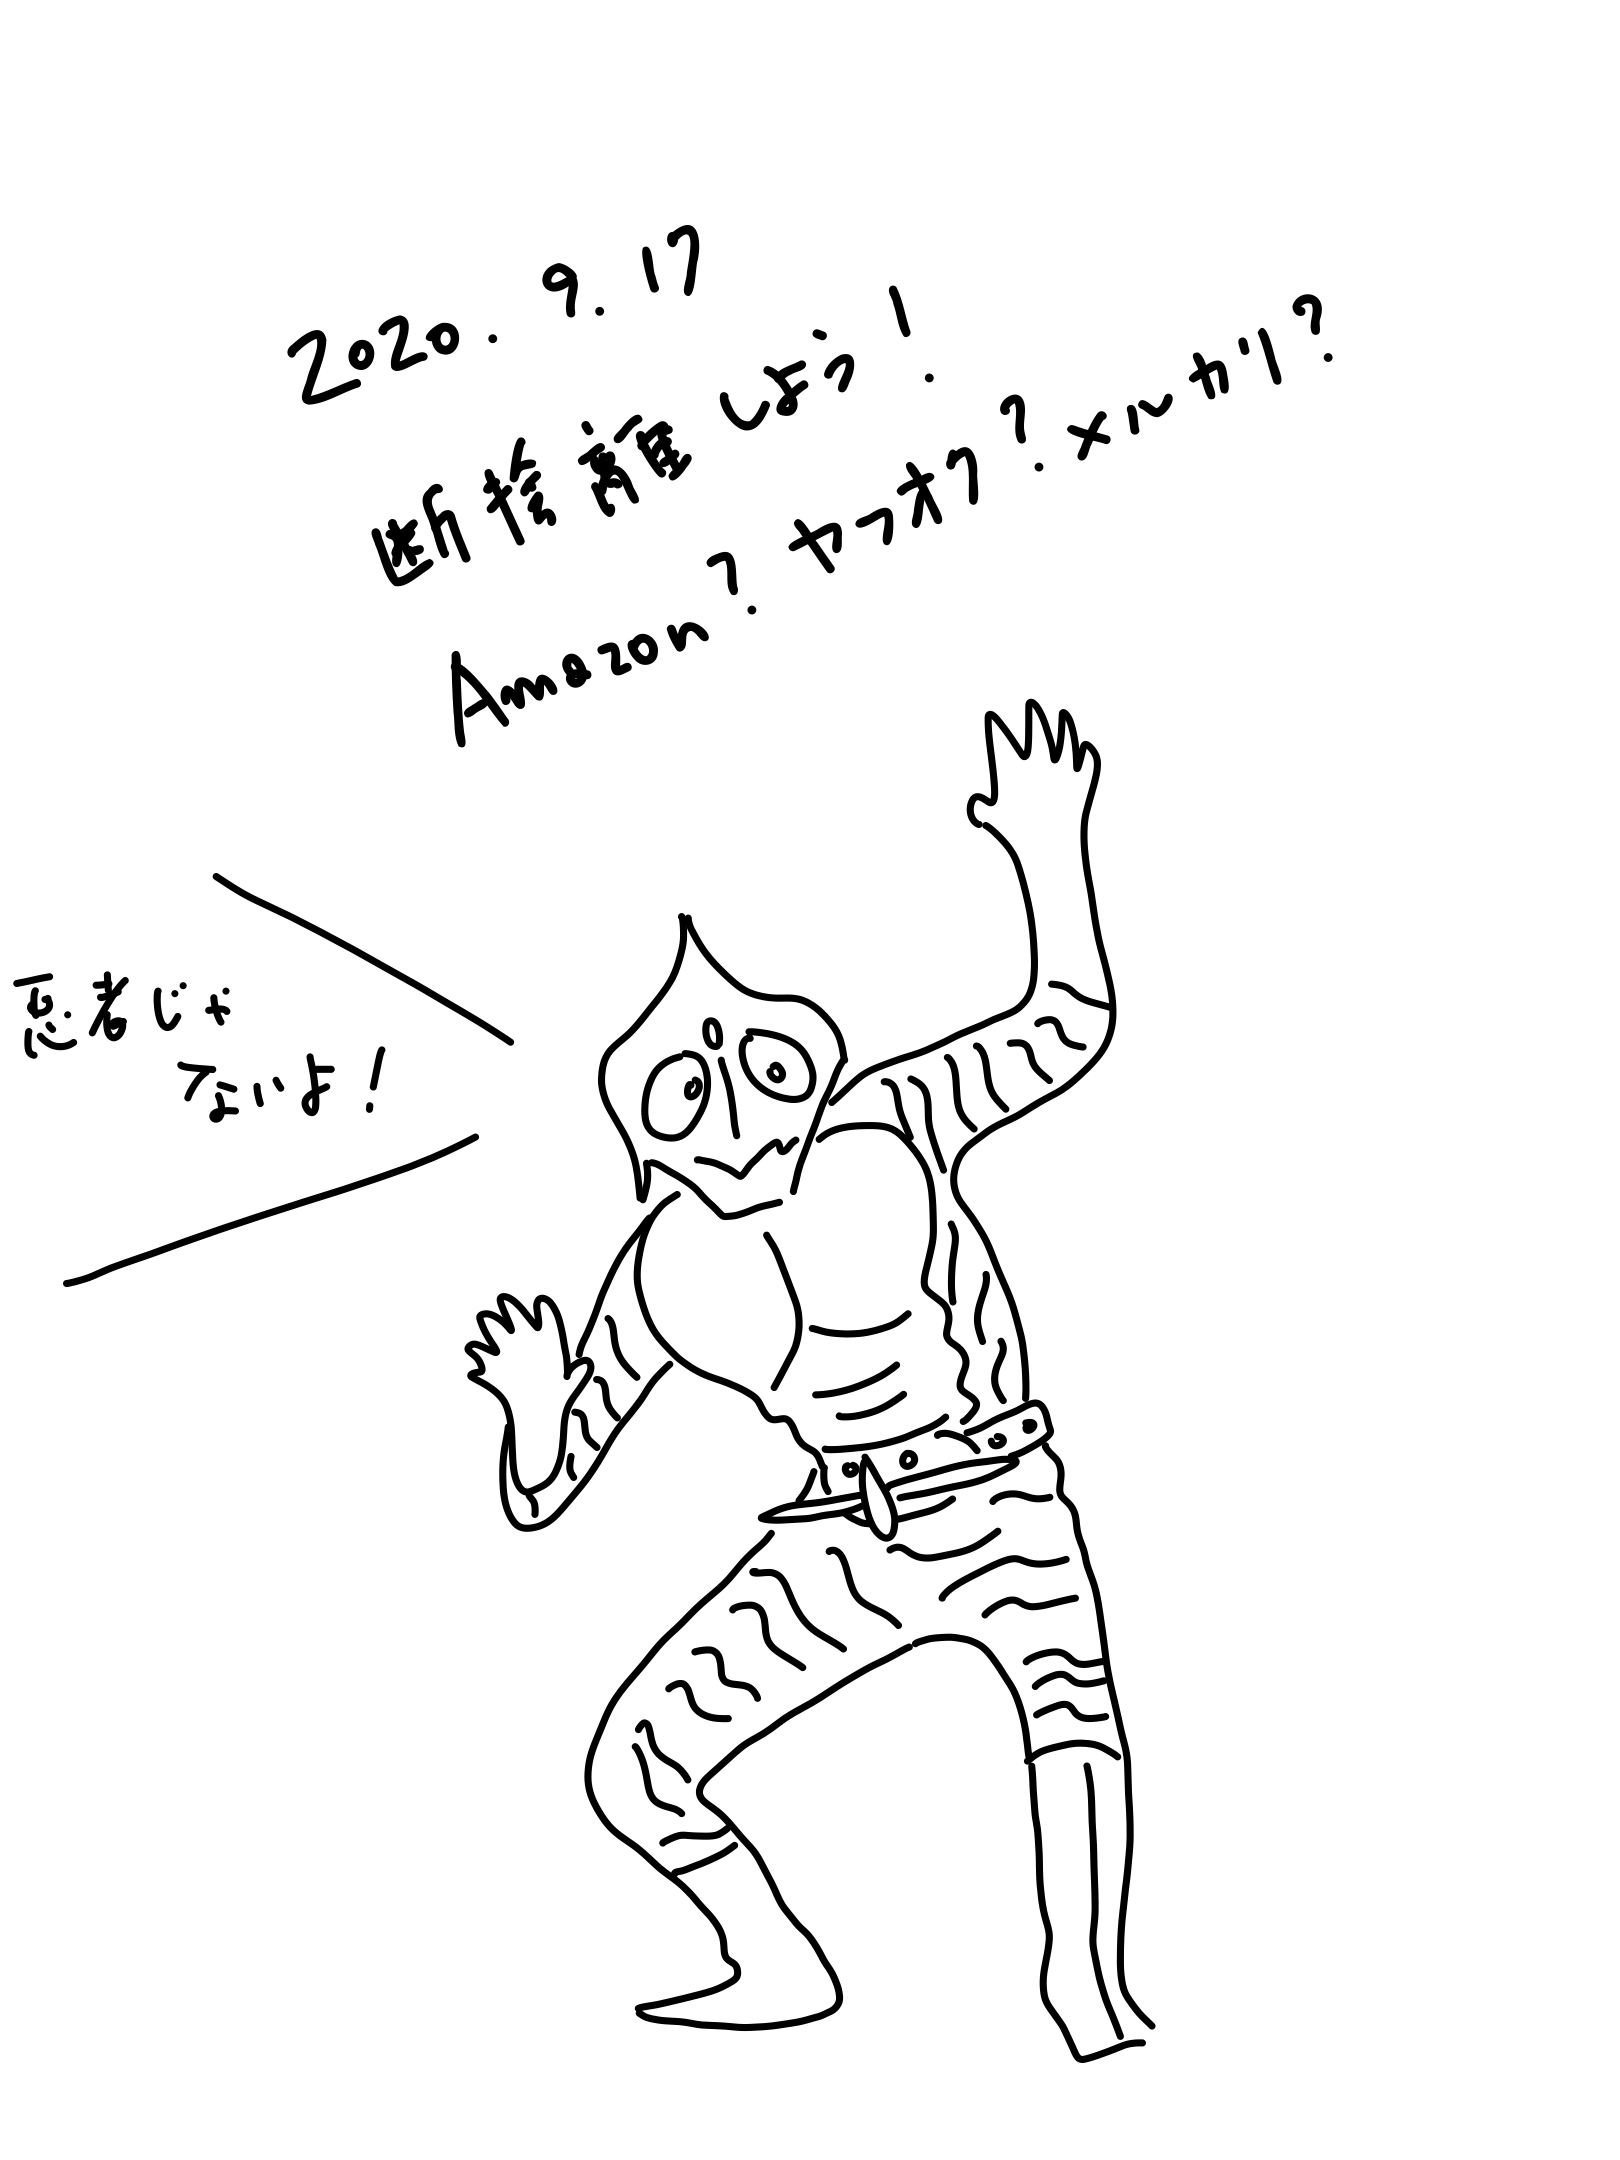 2020. 9. 17
断捨離しよう!
Amazon? ヤフオク? メルカリ?
悪者じゃ
ないよ!